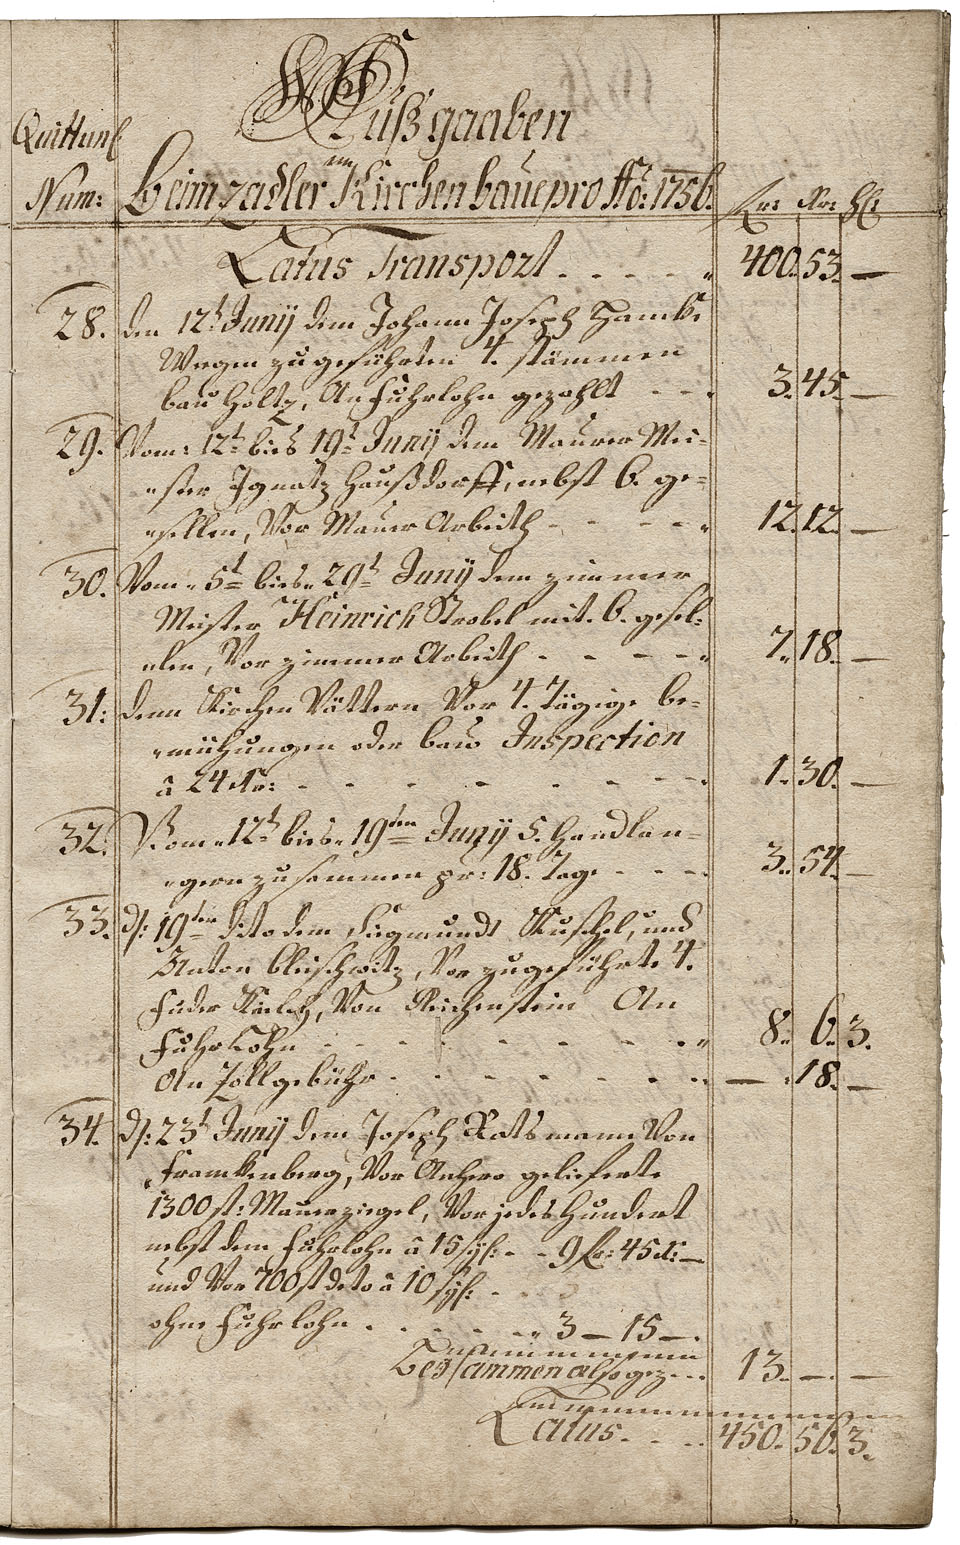 Außgaaben
Quittung
Num: Beim Zadler Kirchen baue pro Aõ: 1756. fl: Kr: hl:
Latus Transport . . . . . " 400. 53. —
28. den 12t Junij dem Johann Joseph Hancke
Wegen zugeführten 4. stämmen
bau holtz, An Fuhrlohn gezahlt - - . 3. 45. —
29. Vom: 12t bies 19t Junij dem Maurer Mei-
"ster Ignatz Haußdorff, nebst 6. ge-
"sellen, Vor Maur Arbeith - - - - " 12. 12. —
30. Vom " 5t bies " 29t Junij dem Zimmer
Meister Heinrich Strobel mit 6. gesel-
"len, Vor Zimmer Arbeith - - - - " 7. 18. —
31: denen Kirchen Vättern Vor 4. Tägige be-
"mühungen oder bau Inspection
â 24 Kr: - - - - - - - - 1. 30. —
32. Vom " 12t bies " 19ten Junij 5. Handlan-
"gern zusammen pr: 18. Tage - - - - 3. 54. —
33. d: 19ten dito dem Siegmundt Kuschel, und
Anton bleischwitz, Vor zugeführte 4.
Fuder Kalch, Von Reichenstein An
Fuhr Lohn - - - - - - - - " 8. 6. 3.
An Zollgebühr - - - - - - - - — 18. —
34. d: 23t Junij dem Joseph Ratsmann Von
Franckenberg, Vor Anhero gelieferte
1300 st: Mauerziegel, Vor jedes Hundert
nebst dem Fuhrlohn â 15 sgl: - - 9 fl: 45 Kr: —
und Vor 700 st dito â 10 sgl: -
ohne Fuhrlohn . . . . . " 3 — 15 — .
Beysammen also gez. - - . 13. — . —
Latus. . . . . 450. 56. 3.